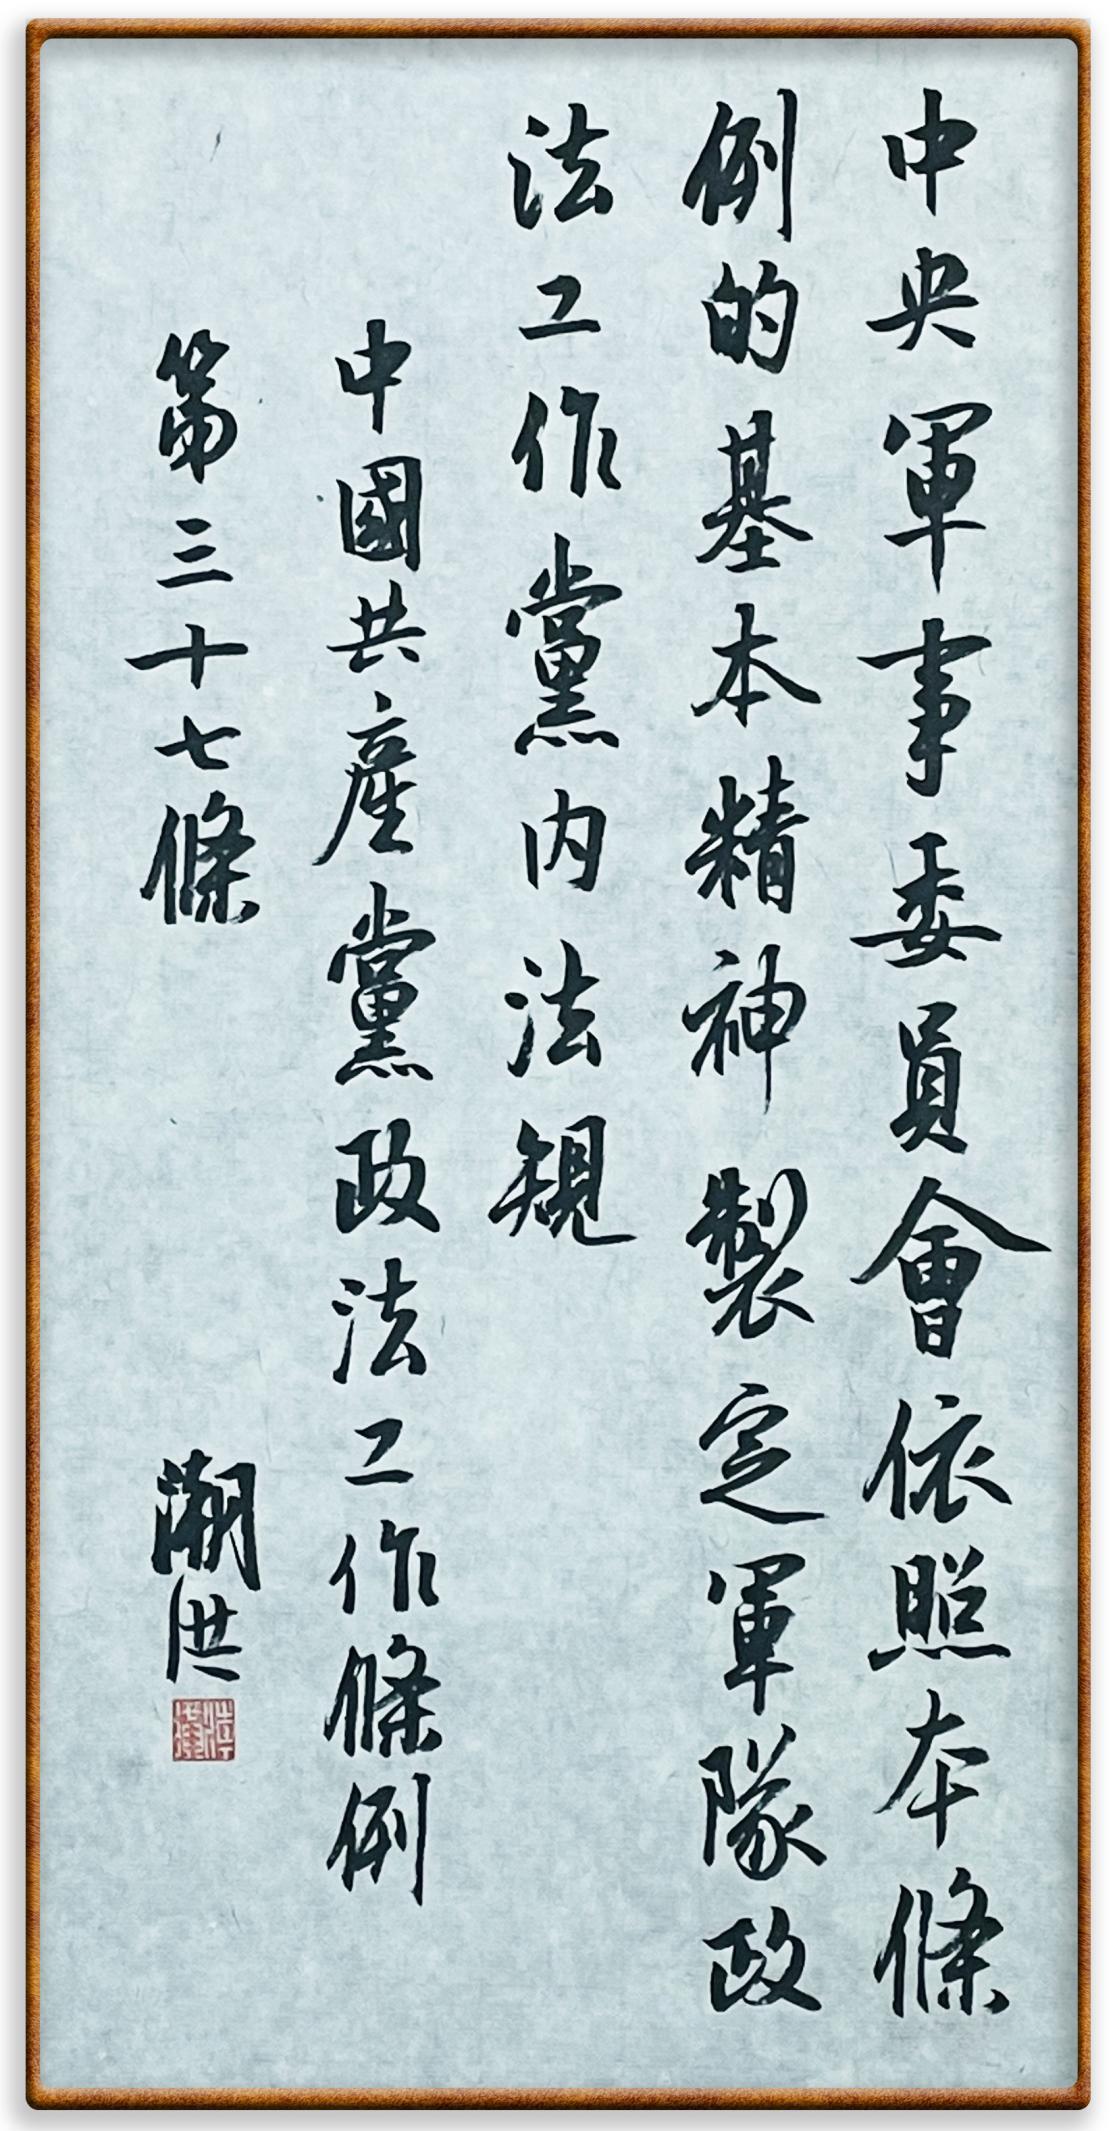 中央軍事委員會依照本條
例的基本精神製定軍隊政
法工作黨内法規
中國共產黨政法工作條例
第三十七條
潮洪